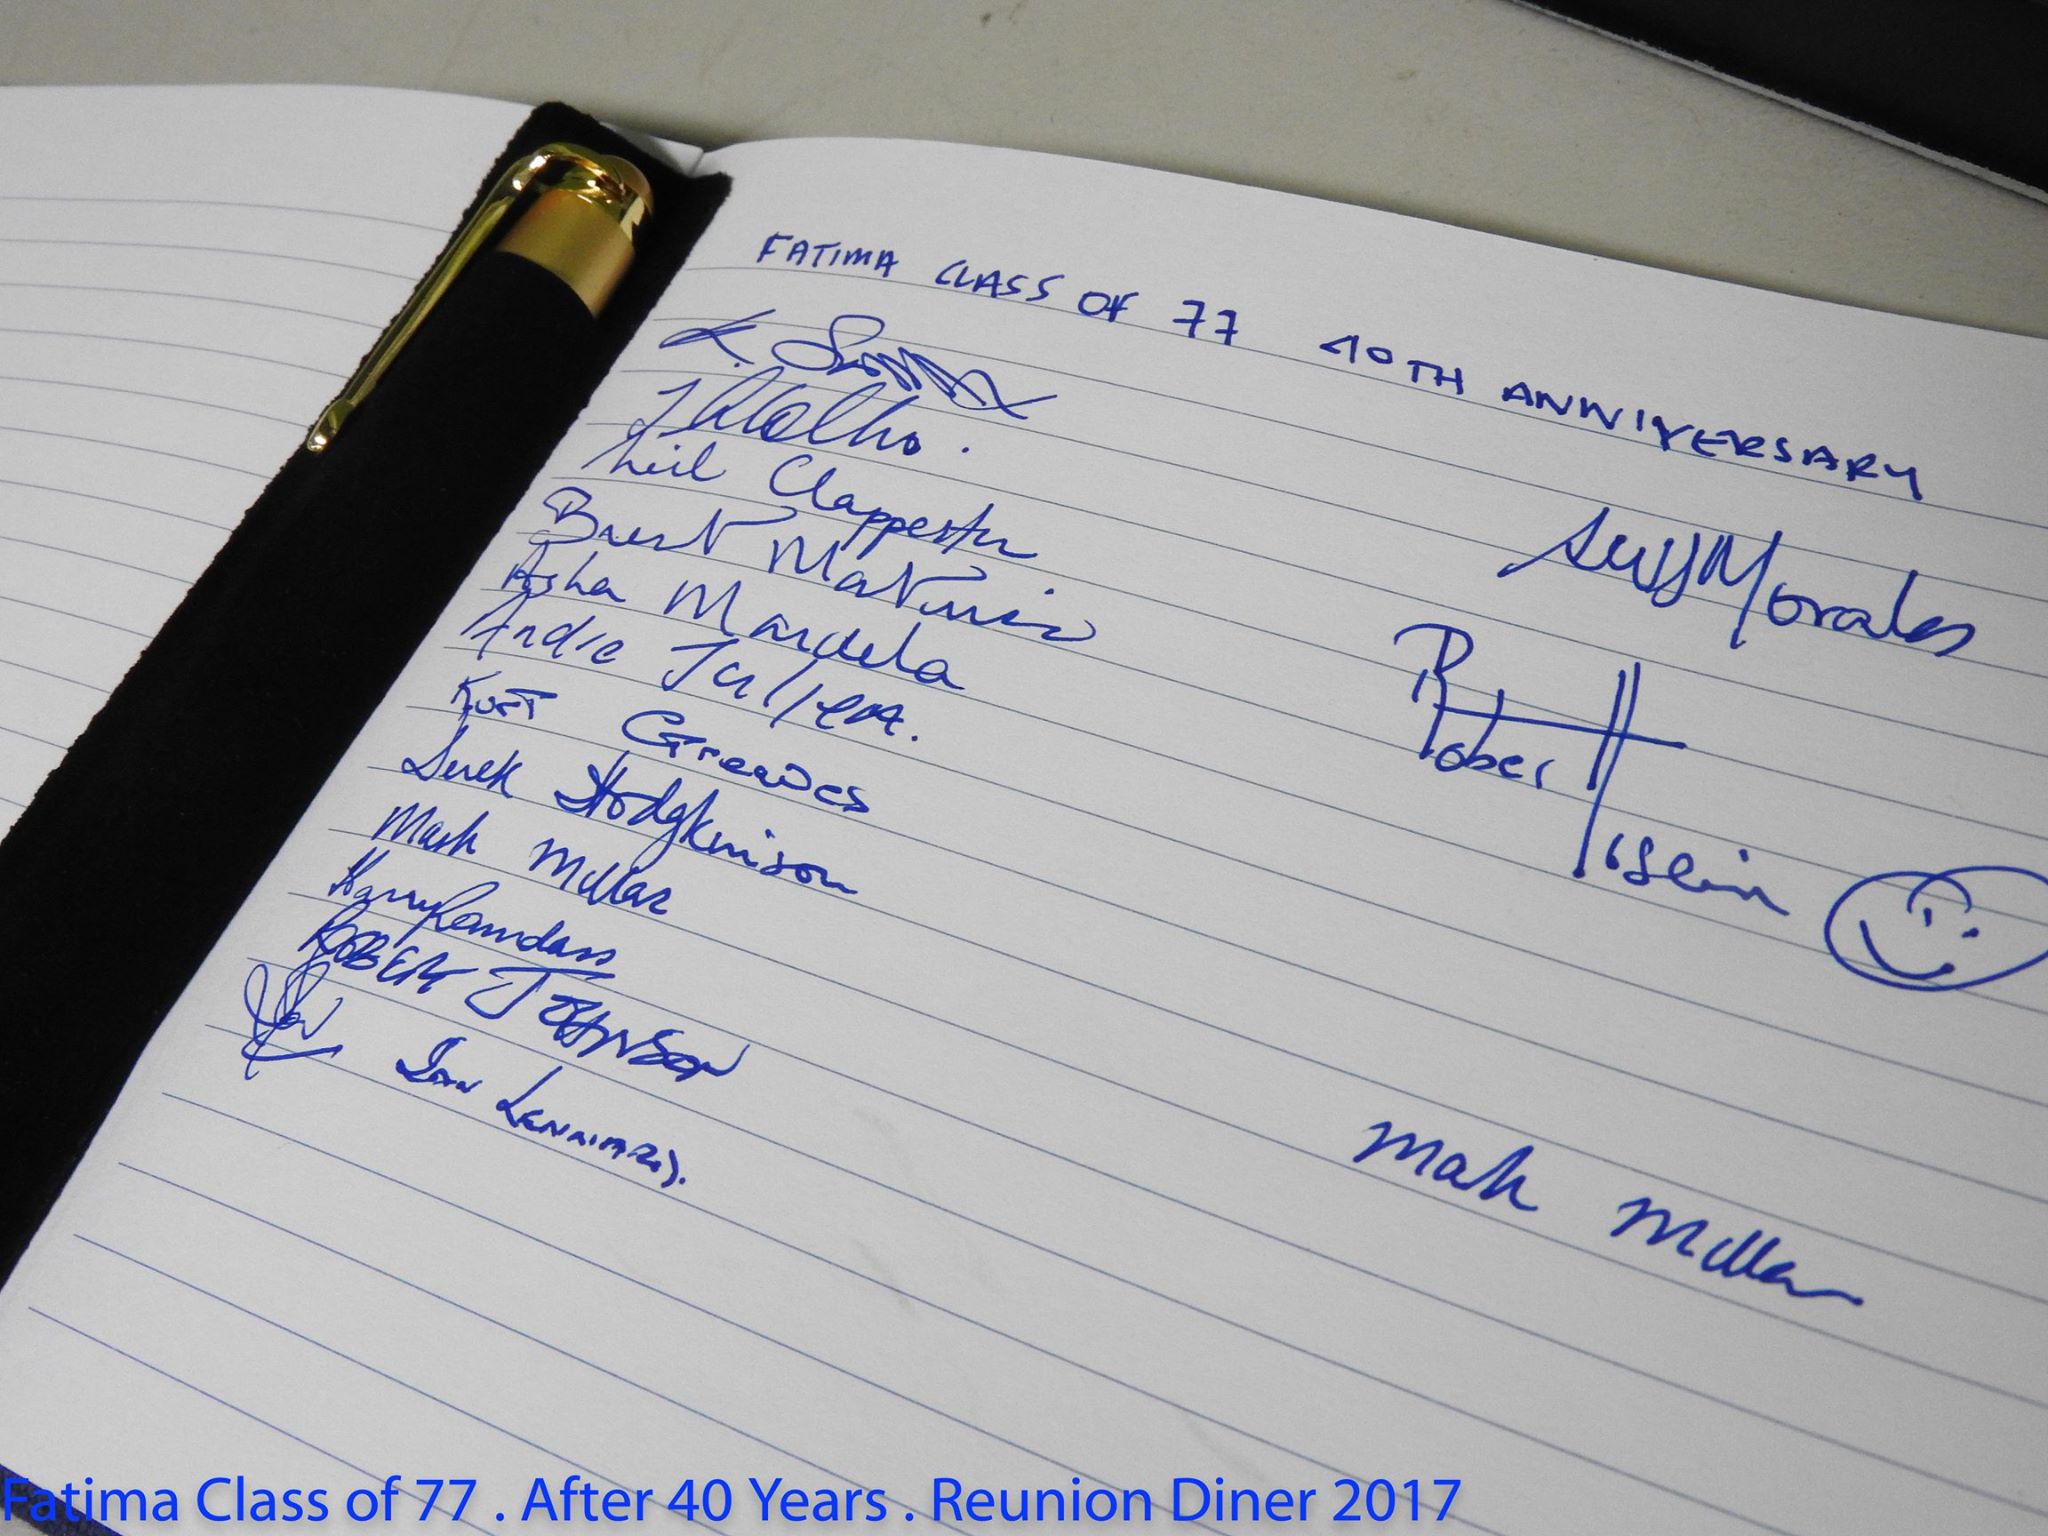 FATIMA CLASS OF 77 40TH ANNIVERSARY
K.
Neil Clappertn
Brent Martinez
Asha Mandela
Andre Julien.
Kurt Greaves
Derek Hodgkinson
Mark Millar
Harry Ramdass
ROBERT JOHNSON
Ian Lennard.
Morales
Robert Hosein
Mark Millar
Fatima Class of 77 . After 40 Years . Reunion Diner 2017